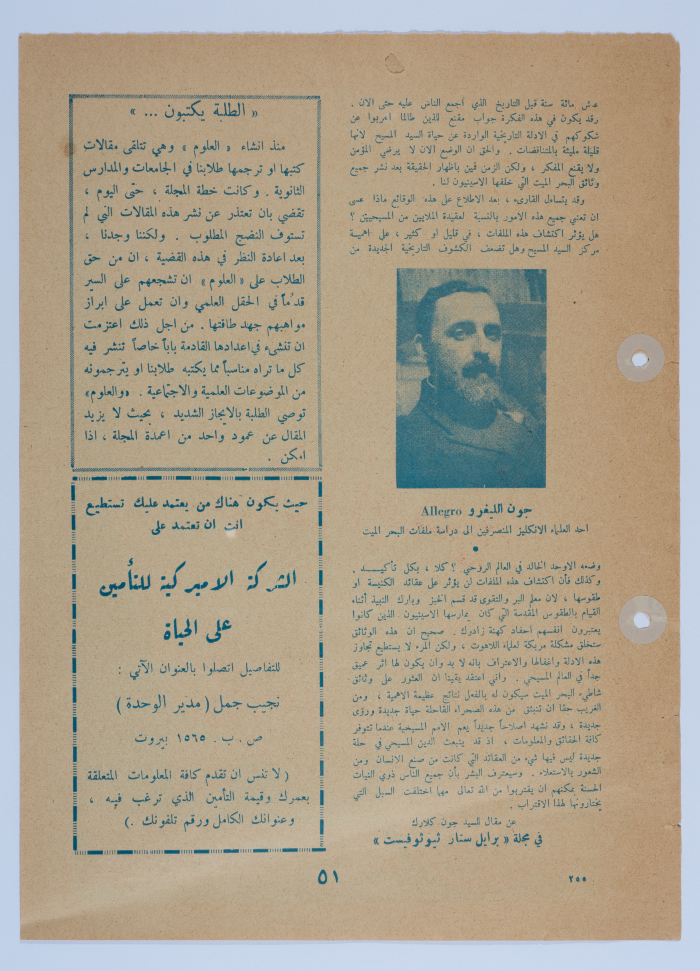 عش مائة سنة قبل التاريخ الذي اجمع الناس عليه حتى الان .
وقد يكون في هذه الفكرة جواب مقنع للذين طالما اعربوا عن
شكوكهم في الادلة التاريخية الواردة عن حياة السيد المسيح لانها
قليلة مليئة بالمتناقضات . والحق ان الوضع الان لا يرضي المؤمن
ولا يقنع المفكر ، ولكن الزمن قمين باظهار الحقيقة بعد نشر جميع
وثائق البحر الميت التي خلفها الاسينيون لنا .
وقد يتساءل القارىء ، بعد الاطلاع على هذه الوقائع ماذا عسى
ان تعني جميع هذه الامور بالنسبة لعقيدة الملايين من المسيحيين ؟
هل يؤثر اكتشاف هذه الملفات ، في قليل او كثير ، على اهمية
مركز السيد المسيح وهل تضعف الكشوف التاريخية الجديدة من
جون الليغرو Allegro
احد العلماء الانكليز المنصرفين الى دراسة ملفات البحر الميت
وضعه الاوحد الخالد في العالم الروحي ؟ كلا ، بكل تأكيـــد .
وكذلك فأن اكتشاف هذه الملفات لن يؤثر على عقائد الكنيسة او
طقوسها ، لان معلم البر والتقوى قد قسم الخبز وبارك النبيذ أثناء
القيام بالطقوس المقدسة التي كان يمارسها الاسينيون الذين كانوا
يعتبرون انفسهم احفاد كهنة زادوك . صحيح ان هذه الوثائق
ستخلق مشكلة مربكة لعلماء اللاهوت ، ولكن المرء لا يستطيع تجاوز
هذه الادلة واغفالها والاعتراف بانه لا بد وان يكون لها اثر عميق
جداً في العالم المسيحي . وانني اعتقد يقينا ان العثور على وثائق
شاطيء البحر الميت سيكون له بالفعل نتائج عظيمة الاهمية ، ومن
الغريب حقا ان تنبثق من هذه الصحراء القاحلة حياة جديدة ورؤى
جديدة ، وقد نشهد اصلاحاً جديداً يعم الامم المسيحية عندما تتوفر
كافة الحقائق والمعلومات ، اذ قد ينبعث الدين المسيحي في حلة
جديدة ليس فيها شيء من العقائد التي كانت من صنع الانسان ومن
الشعور بالاستعلاء . وسيعترف البشر بأن جميع الناس ذوي النيات
الحسنة يمكنهم ان يقتربوا من الله تعالى مهما اختلفت السبل التي
يختارونها لهذا الاقتراب .
عن مقال للسيد جون كلارك
في مجلة « برايل ستار ثيوثوفيست »
٢٥٥
« الطلبة يكتبون ... »
منذ انشاء « العلوم » وهي تتلقى مقالات
كتبها او ترجمها طلابنا في الجامعات والمدارس
الثانوية . وكانت خطة المجلة ، حتى اليوم ،
تقضي بان تعتذر عن نشر هذه المقالات التي لم
تستوف النضج المطلوب . ولكننا وجدنا ،
بعد اعادة النظر في هذه القضية ، ان من حق
الطلاب على « العلوم » ان تشجعهم على السير
قدماً في الحقل العلمي وان تعمل على ابراز
مواهبهم جهد طاقتها . من اجل ذلك اعتزمت
ان تنشىء في اعدادها القادمة باباً خاصاً تنشر فيه
كل ما تراه مناسباً مما يكتبه طلابنا او يترجمونه
من الموضوعات العلمية والاجتماعية . «والعلوم»
توصي الطلبة بالايجاز الشديد ، بحيث لا يزيد
المقال عن عمود واحد من اعمدة المجلة ، اذا
امكن .
حيث يكون هناك من يعتمد عليك تستطيع
انت ان تعتمد على
الشركة الاميركية للتأمين
على الحياة
للتفاصيل اتصلوا بالعنوان الآتي :
نجيب جمل ( مدير الوحدة )
ص . ب . ١٥٦٥ بيروت
( لا تنس ان تقدم كافة المعلومات المتعلقة
بعمرك وقيمة التأمين الذي ترغب فيه ،
وعنوانك الكامل ورقم تلفونك .)
٥١